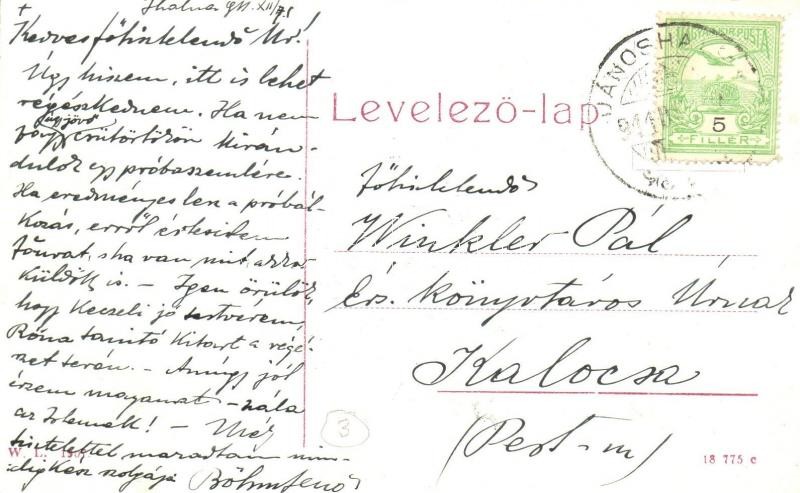 +
911 XII/7
Kedves főtisztelendő Úr!
Úgy hiszem, itt is lehet
régészkednem. Ha nem
úgy jövő
fagy csütörtökön kirán-
dulok egy próbaszemlére.
Ha eredményes lesz a próbál-
kozás, erről értesitem
Főurat, s ha van mit, akkor
küldök is. – Igen örülök,
hogy Keczeli jó testvérem,
Róna tanitó kitart a régé-
szet terén. – Amúgy jól
érzem magamat – hála
az Istennek! – Mély
tisztelettel maradtam min-
dig kész szolgája Böhm Jenő
Levelező-lap
JÁNOSHA
MAGYAR KIR. POSTA
5
FILLÉR
Főtisztelendő
Winkler Pál
Érs. könyvtáros Úrnak
Kalocsa
(Pest-m)
3
W. L.
18 775 c